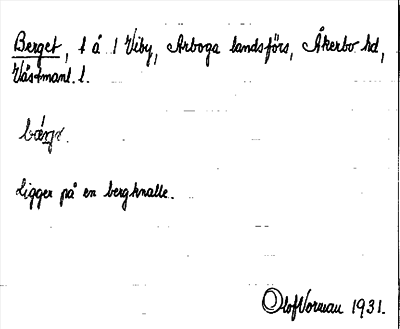 Berget, t å 1 Viby, Arboga landsförs, Åkerbo hd,
Västmanl. l.
bærjə.
Ligger på en bergknalle.
Olof Norman 1931.